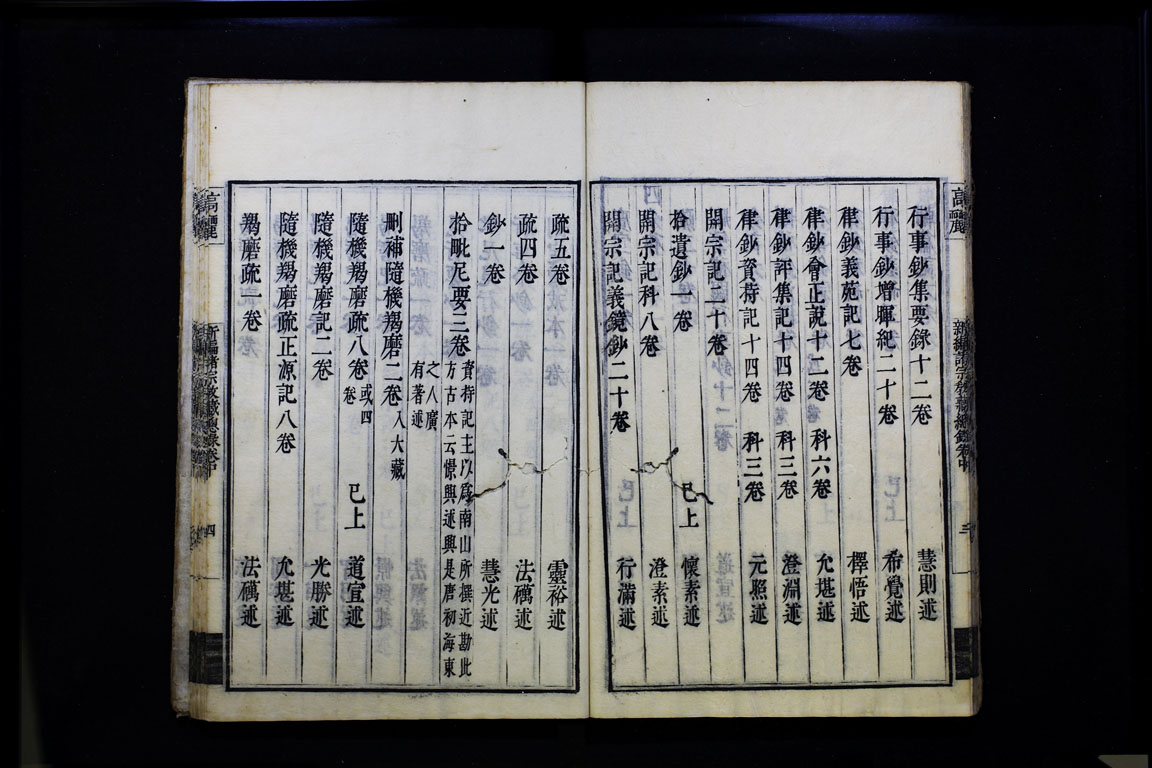 高麗
新編諸宗教藏總錄卷中
三
行事鈔集要錄十二卷 慧則述
行事鈔增暉紀二十卷 希覺述
律鈔義苑記七卷 擇悟述
律鈔會正說十二卷 科六卷 允堪述
律鈔評集記十四卷 科三卷 澄淵述
律鈔資持記十四卷 科三卷 元照述
開宗記二十卷
拾遺鈔一卷 已上 懷素述
開宗記科八卷 澄素述
開宗記義鏡鈔二十卷 行滿述
疏五卷 靈裕述
疏四卷 法礪述
鈔一卷 慧光述
拾毗尼要三卷 資持記主以爲南山所撰近勘此
方古本云憬興述興是唐初海東
之人廣
有著述
刪補隨機羯磨二卷 入大藏
隨機羯磨疏八卷 或四卷 已上 道宣述
隨機羯磨記二卷 光勝述
隨機羯磨疏正源記八卷 允堪述
羯磨疏一卷 法礪述
高麗
新編諸宗教藏總錄卷中
四